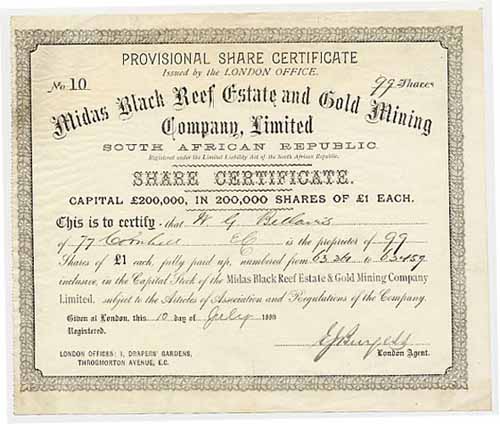 PROVISIONAL SHARE CERTIFICATE
Issued by the LONDON OFFICE.
No 10 99 Shares
Midas Black Reef Estate and Gold Mining
Company, Limited
SOUTH AFRICAN REPUBLIC.
Registered under the Limited Liability Act of the South African Republic.
SHARE CERTIFICATE.
CAPITAL £200,000, IN 200,000 SHARES OF £1 EACH.
This is to certify that W G
of 77 Cornhill EC is the proprietor of 99
Shares of £1 each, fully paid up, numbered from to 63459
inclusive, in the Capital Stock of the Midas Black Reef Estate & Gold Mining Company
Limited, subject to the Articles of Association and Regulations of the Company.
Given at London, this 10 day of July
Registered.
London Agent.
LONDON OFFICES: 1, DRAPERS' GARDENS,
THROGMORTON AVENUE, E.C.